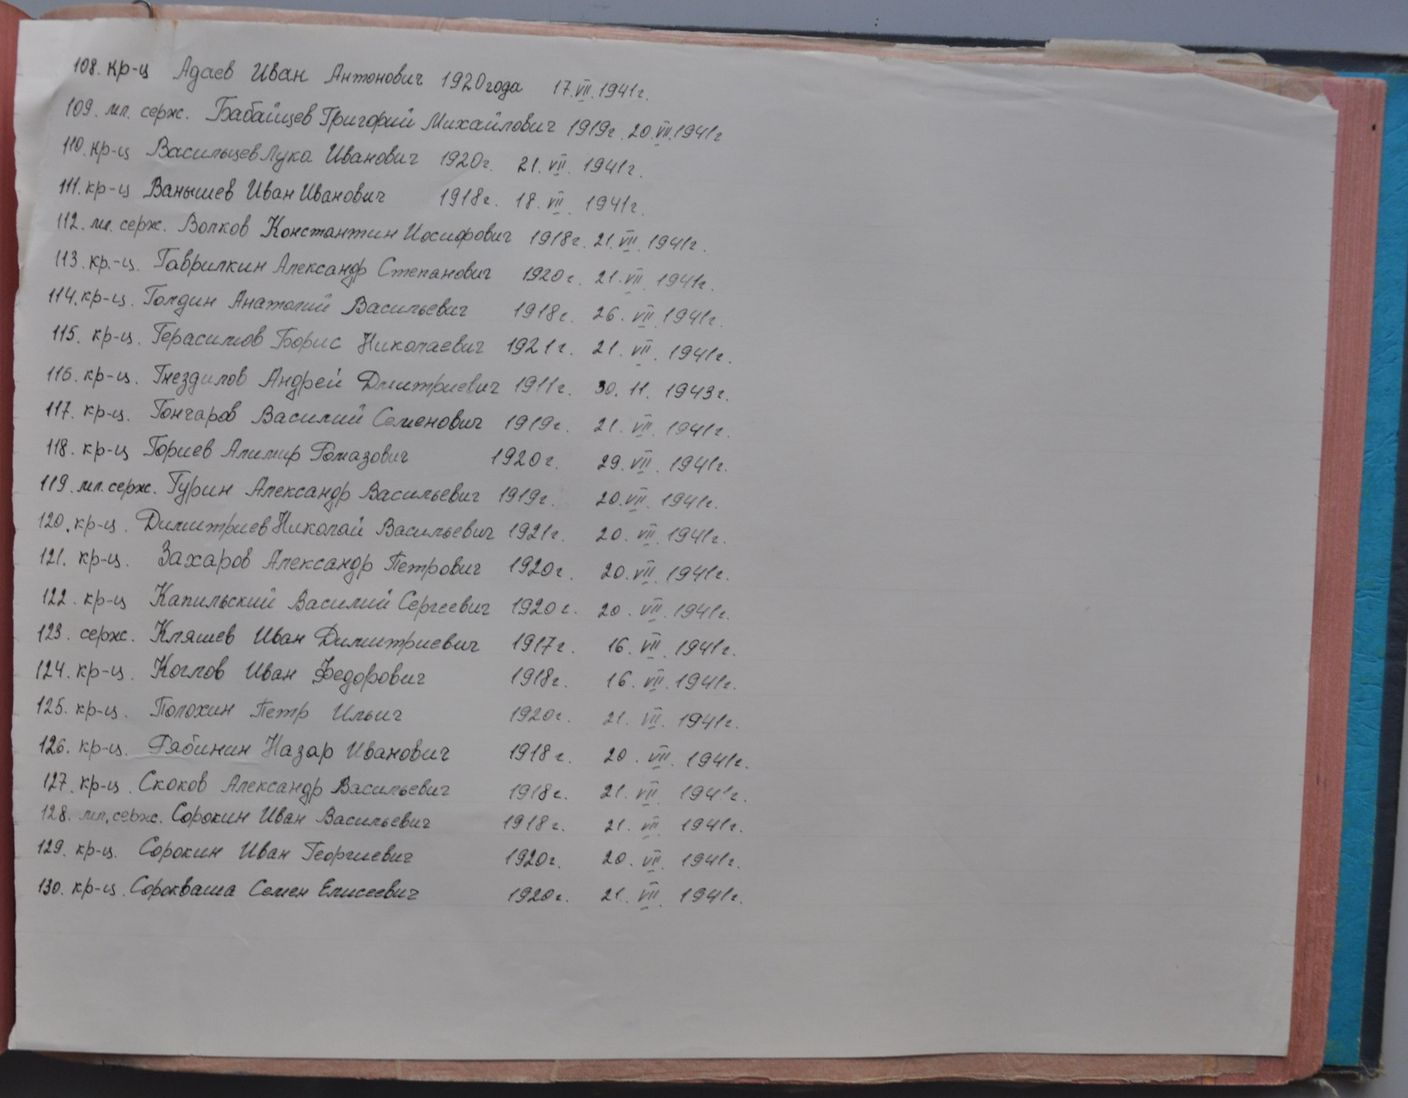 108. кр-ц Адаев Иван Антонович 1920 года 17.VII.1941г.
109. мл. серж. Бабайцев Григорий Михайлович 1919г. 20.VII.1941г
110. кр-ц Васильцев Лука Иванович 1920г. 21.VII.1941г.
111. кр-ц Ванышев Иван Иванович 1918г. 18.VII.1941г.
112. мл. серж. Волков Константин Иосифович 1918г. 21.VII.1941г.
113. кр.-ц. Гаврилкин Александр Степанович 1920г. 21.VII.1941г.
114. кр-ц. Голдин Анатолий Васильевич 1918г. 26.VII.1941г.
115. кр-ц. Герасимов Борис Николаевич 1921г. 21.VII.1941г.
116. кр-ц. Гнездилов Андрей Дмитриевич 1911г. 30.11.1943г.
117. кр-ц. Гончаров Василий Семенович 1919г. 21.VII.1941г.
118. кр-ц Гориев Алимир Ромазович 1920г. 29.VII.1941г.
119. мл. серж. Гурин Александр Васильевич 1919г. 20.VII.1941г.
120. кр-ц. Димитриев Николай Васильевич 1921г. 20.VII.1941г.
121. кр-ц. Захаров Александр Петрович 1920г. 20.VII.1941г.
122. кр-ц Капильский Василий Сергеевич 1920г. 20.VII.1941г.
123. серж. Кляшев Иван Димитриевич 1917г. 16.VII.1941г.
124. кр-ц. Коглов Иван Федорович 1918г. 16.VII.1941г.
125. кр-ц. Полохин Петр Ильич 1920г. 21.VII.1941г.
126. кр-ц. Рябинин Назар Иванович 1918г. 20.VII.1941г.
127. кр-ц. Скоков Александр Васильевич 1918г. 21.VII.1941г.
128. мл. серж. Сорокин Иван Васильевич 1918г. 21.VII.1941г.
129. кр-ц. Сорокин Иван Георгиевич 1920г. 20.VII.1941г.
130. кр-ц. Сорокваша Семен Елисеевич 1920г. 21.VII.1941г.